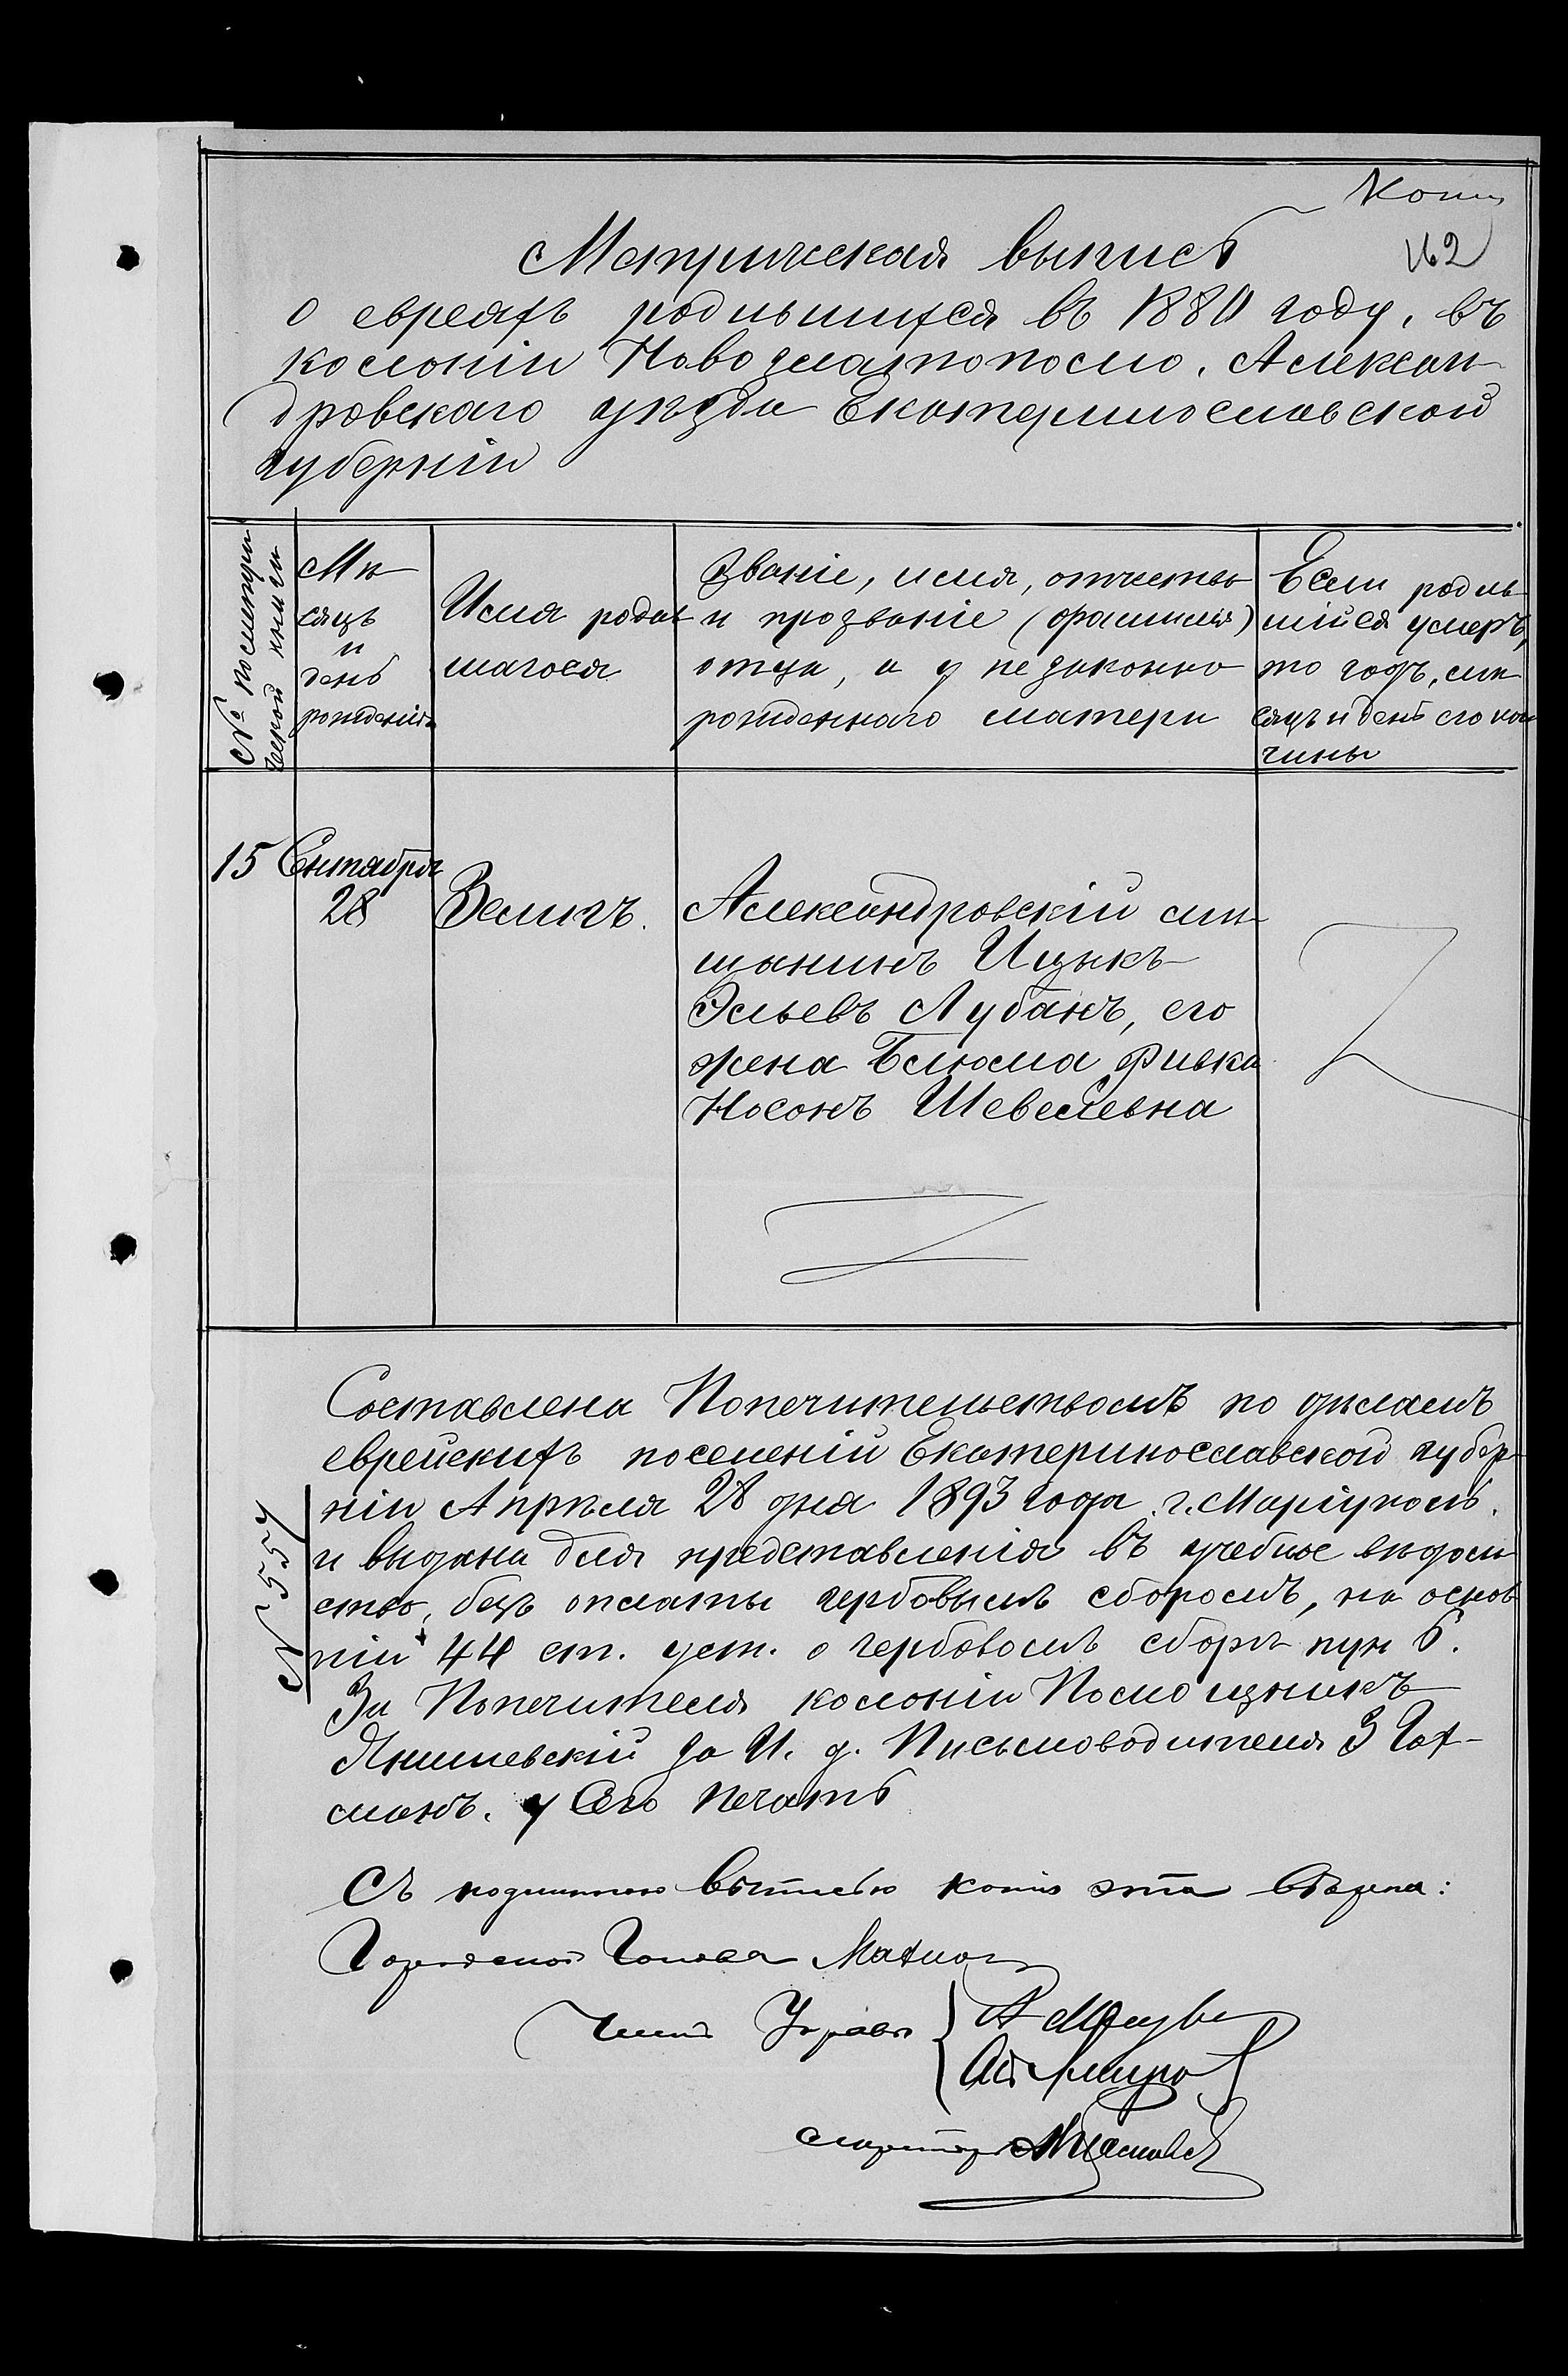 Копія
162
Метрическая выпись
о евреяхъ родившихся въ 1880 году, въ
колоніи Новозлатополю, Алексан-
дровскаго уѣзда Екатеринославской
губерніи
№ по метри
ческой книги
Мѣ-
сяцъ
и
день
рожденія
Имя родив
шагося
Званіе, имя, отчество
и прозваніе (фамилія)
отца, а у незаконно
рожденнаго матери
Если родив
шійся умеръ,
то годъ, мѣ
сяцъ и день его кон
чины
15 Сентября
28
Зеликъ.
Александровскій мѣ-
щанинъ Ицыкъ
Эльевъ Лубанъ, его
жена Блюма Ривка
Носонъ Шевелевна
Составлена Попечительствомъ по дѣламъ
еврейскихъ поселеній Екатеринославской губер-
ніи Апрѣля 28 дня 1893 года г. Маріуполь.
и выдана для представленія въ учебное вѣдом-
ство, безъ оплаты гербовымъ сборомъ, на основ
ніи 44 ст. уст. о гербовомъ сборѣ пун 6.
За Попечителя колоніи Помощникъ
Янишевскій За И. д. Письмоводителя З Гох-
манъ. у Сего печать
№ 557
Съ подлинною выписью копія эта вѣрна:
Городской Голова
Члены Управы
Секретарь